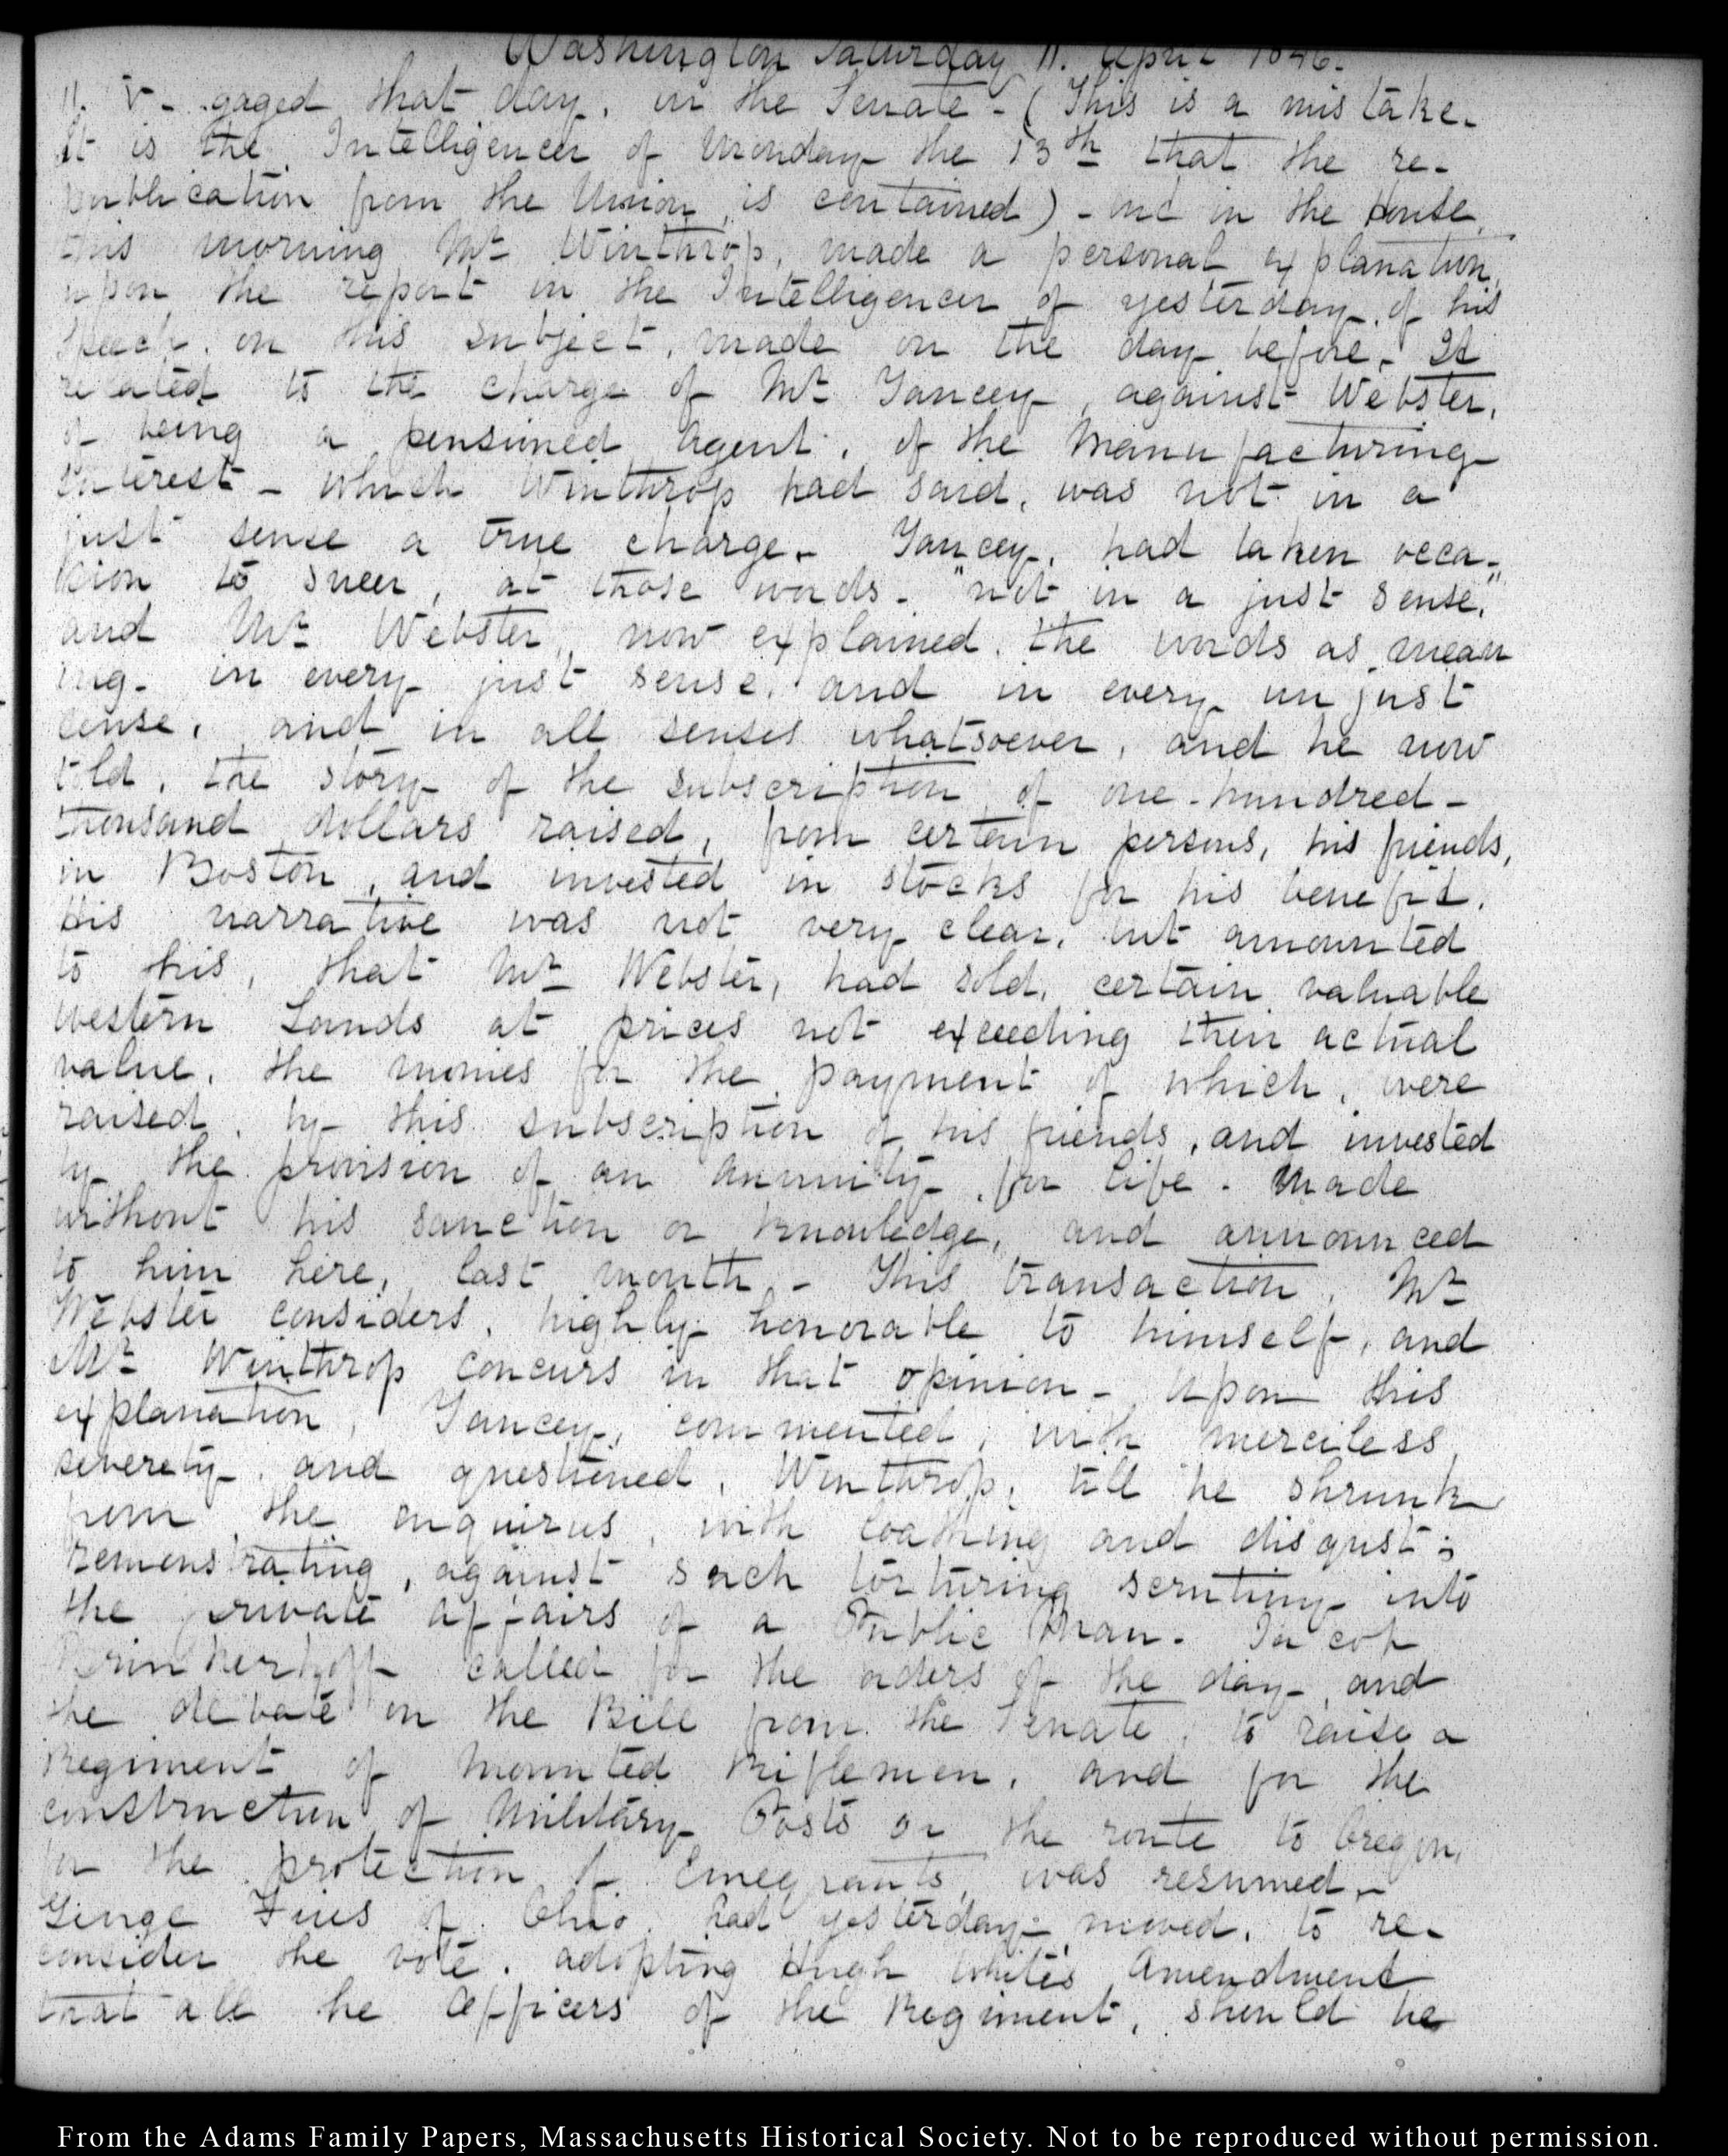 Washington Saturday 11. April 1846.
11. V. gaged that day, in the Senate - (This is a mistake.
It is the Intelligencer of Monday the 13th that the re-
publication from the Union, is contained) - and in the House,
this morning Mr Winthrop, made a personal explanation,
upon the report in the Intelligencer of yesterday, of his
speech, on this subject, made on the day before. It
related to the charge of Mr Yancey, against Webster,
of being a pensioned agent, of the Manufacturing
interest - which Winthrop had said, was not in a
just sense a true charge. Yancey, had taken occa-
sion to sneer, at those words - "not in a just sense,"
and Mr Webster, now explained, the words as mean
ing - in every just sense, and in every unjust
sense, and in all senses whatsoever, and he now
told, the story of the subscription of one-hundred-
thousand dollars raised, from certain persons, his friends,
in Boston, and invested in stocks for his benefit.
His narrative was not very clear, but amounted
to this, that Mr Webster, had sold, certain valuable
western Lands at prices not exceeding their actual
value, the monies for the payment of which, were
raised, by this subscription of his friends, and invested
by the provision of an annuity, for life - Made
without his sanction or knowledge, and announced
to him here, last month. - This transaction, Mr
Webster considers, highly honorable to himself, and
Mr Winthrop concurs in that opinion - Upon this
explanation, Yancey, commented, with merciless,
severety, and questioned, Winthrop, till he shrunk
from the enquiries, with loathing and disgust;
remonstrating, against such torturing scrutiny into
the private affairs of a Public Man. Jacob
Brinkerhoff called for the orders of the day, and
the debate on the Bill from the Senate, to raise a
Regiment of mounted Riflemen, and for the
construction of Military Posts on the route to Oregon,
for the protection of Emegrants, was resumed.
George Fries of Ohio, had yesterday moved, to re-
consider the vote, adopting Hugh White's Amendment
that all the Officers of the Regiment, should be
From the Adams Family Papers, Massachusetts Historical Society. Not to be reproduced without permission.